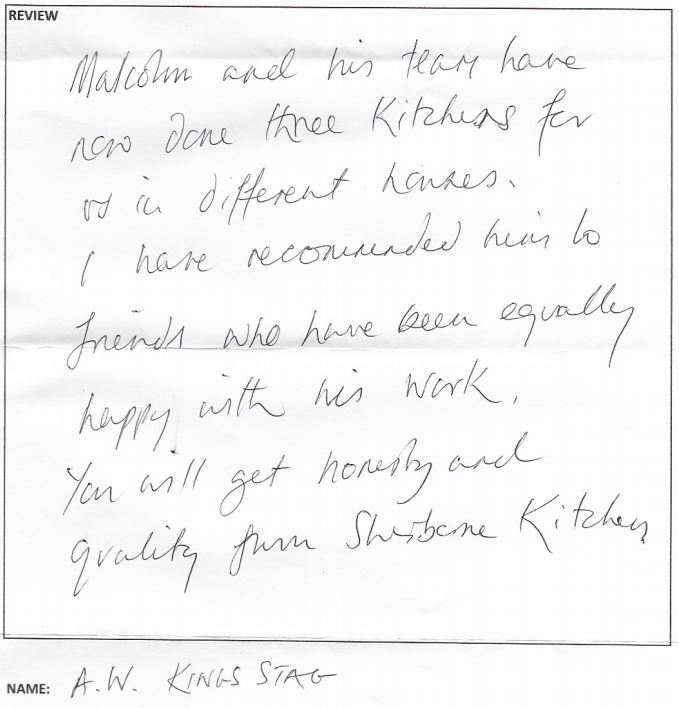 REVIEW
Malcolm and his team have
now done three Kitchens for
us in different houses.
I have recommended him to
friends who have been equally
happy with his work.
You will get honesty and
quality from Sherborne Kitchens
NAME: A.W. KINGS STAG